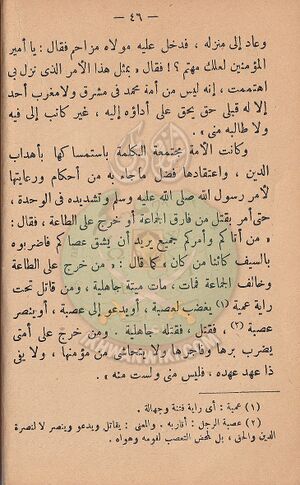 — ٤٦ —
وعاد إلى منزله ، فدخل عليه مولاه مزاحم فقال : يا أمير
المؤمنين لعلك مهتم ؟! فقال « بمثل هذا الأمر الذى نزل بى
اهتممت ، إنه ليس من أمة محمد فى مشرق ولا مغرب أحد
إلا له قبلى حق يحق على أداؤه إليه ، غير كاتب إلى فيه
ولا طالبه منى » .
وكانت الأمة مجتمعة الكلمة باستمساكها بأهداب
الدين ، واعتقادها فضل ماجاء به من أحكام ورعايتها
لأمر رسول الله صلى الله عليه وسلم وتشديده فى الوحدة ،
حتى أمر بقتل من فارق الجماعة أو خرج على الطاعة ، فقال :
« من أتاكم وأمركم جميع يريد أن يشق عصاكم فاضربوه
بالسيف كائنا من كان ، كما قال : « من خرج على الطاعة
وخالف الجماعة فمات ، مات ميتة جاهلية ، ومن قاتل تحت
راية عمية (١) يغضب لعصبة ، أو يدعو إلى عصبة ، أو ينصر
عصبة (٢) ، فقتل ، فقتله جاهلية . ومن خرج على أمتى
يضرب برها وفاجرها ولا يتحاشى من مؤمنها ، ولا يفى
ذا عهد عهده ، فليس منى ولست منه » .
(١) عمية : أى راية فتنة وجهالة .
(٢) عصبة الرجل : أقاربه . والمعنى : يقاتل ويدعو وينصر لا لنصرة
الدين والحق ، بل لمحض التعصب لقومه وهواه .